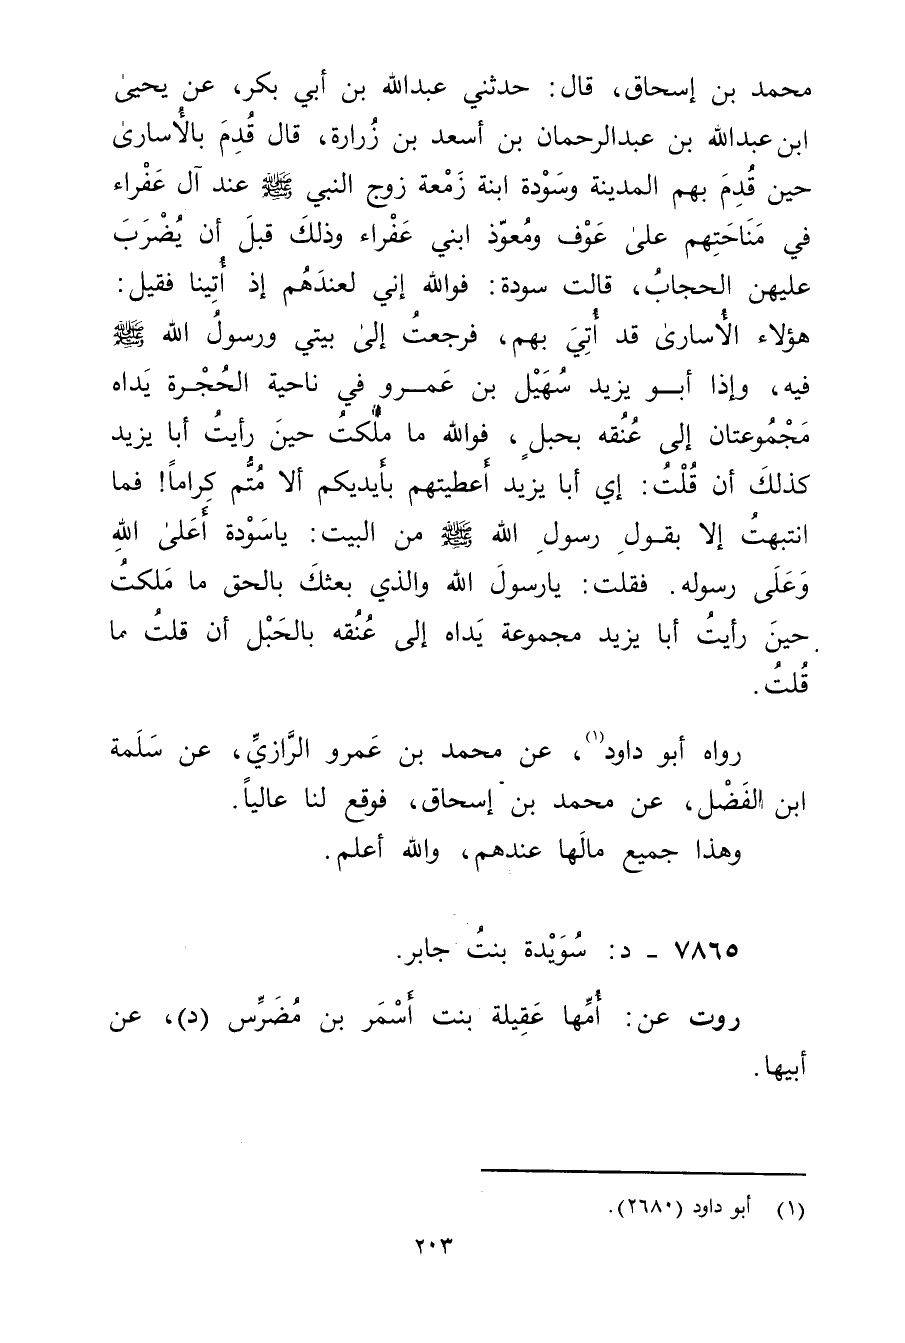 محمد بن إسحاق، قال: حدثني عبدالله بن أبي بكر، عن يحيىٰ
ابن عبدالله بن عبدالرحمان بن أسعد بن زُرارة، قال قُدِمَ بالأُسارىٰ
حين قُدِمَ بهم المدينة وسَوْدة ابنة زَمْعة زوج النبي ﷺ عند آل عَفْراء
في مَنَاحَتِهم علىٰ عَوْف ومُعوّذ ابني عَفْراء وذلكَ قبلَ أن يُضْرَبَ
عليهن الحجابُ، قالت سودة: فوالله إني لعندَهُم إذ أُتِينا فقيل:
هؤلاء الأُسارىٰ قد أُتِيَ بهم، فرجعتُ إلىٰ بيتي ورسولُ الله ﷺ
فيه، وإذا أبو يزيد سُهَيْل بن عَمرو في ناحية الحُجْرة يَداه
مَجْمُوعتان إلى عُنُقه بحبلٍ، فوالله ما ملّكتُ حينَ رأيتُ أبا يزيد
كذلكَ أن قُلْتُ: إي أبا يزيد أَعطيتهم بأَيديكم ألا مُتُّم كِراماً! فما
انتبهتُ إلا بقولِ رسولِ الله ﷺ من البيت: ياسَوْدة أَعَلىٰ اللهِ
وَعَلَى رسوله. فقلت: يارسولَ الله والذي بعثكَ بالحق ما مَلكتُ
حينَ رأيتُ أبا يزيد مجموعة يَداه إلى عُنُقه بالحَبْل أن قلتُ ما
قُلتُ.
رواه أبو داود(١)، عن محمد بن عَمرو الرَّازيِّ، عن سَلَمة
ابن الفَضْل، عن محمد بن إسحاق، فوقع لنا عالياً.
وهذا جميع مالَها عندهم، والله أعلم.
٧٨٦٥ ـ د: سُوَيْدة بنتُ جابر.
روت عن: أُمِّها عَقِيلة بنت أَسْمَر بن مُضَرِّس (د)، عن
أبيها.
(١) أبو داود (٢٦٨٠).
٢٠٣